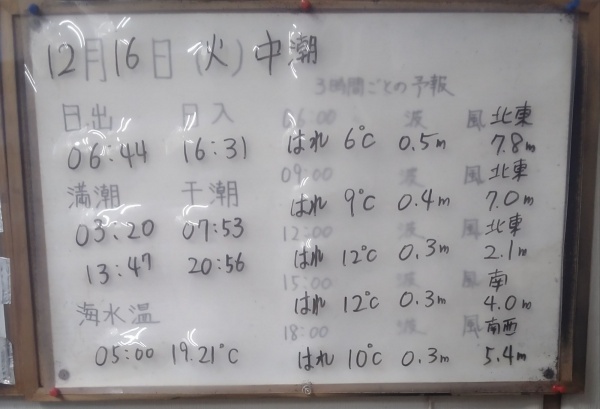 12月16日(火)中潮
3時間ごとの予報
日出 日入
06:44 16:31
満潮 干潮
03:20 07:53
13:47 20:56
海水温
05:00 19.21℃
06:00 波 風 北東
はれ 6℃ 0.5m 7.8m
09:00 波 風 北東
はれ 9℃ 0.4m 7.0m
12:00 波 風 北東
はれ 12℃ 0.3m 2.1m
15:00 波 風 南
はれ 12℃ 0.3m 4.0m
18:00 波 風 南西
はれ 10℃ 0.3m 5.4m